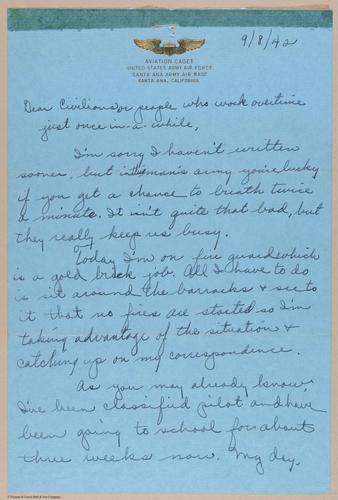 9/8/42
AVIATION CADET
UNITED STATES ARMY AIR FORCE
SANTA ANA ARMY AIR BASE
SANTA ANA, CALIFORNIA
Dear Civilians or people who work overtime
just once-in-a-while,
I'm sorry I haven't written
sooner, but in this man's army you're lucky
if you get a chance to breath twice
a minute. It isn't quite that bad, but
they really keep us busy.
Today I'm on fire guard which
is a gold brick job. All I have to do
is sit around the barracks & see to
it that no fires are started so I'm
taking advantage of the situation &
catching up on my correspondence.
As you may already know,
I've been classified pilot and have
been going to school for about
three weeks now. My day,